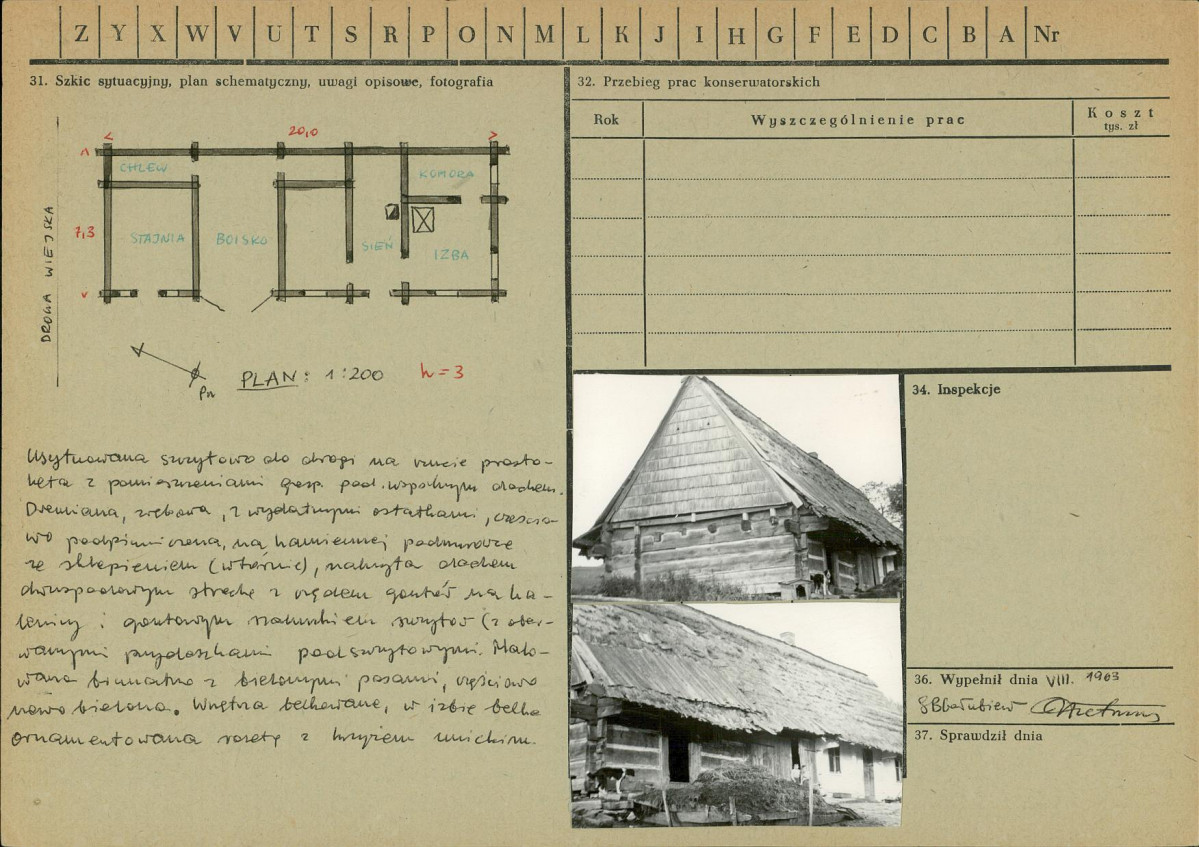 Z Y X W V U T S R P O N M L K J I H G F E D C B A Nr
31. Szkic sytuacyjny, plan schematyczny, uwagi opisowe, fotografia
20,0
CHLEW
KOMORA
7,3
STAJNIA
BOISKO
SIEŃ
IZBA
DROGA WIEJSKA
Pn
PLAN: 1:200
h = 3
Usytuowana szczytowo do drogi na rzucie prosto-
kąta z pomieszczeniami gosp. pod wspólnym dachem.
Drewniana, zrębowa, z wydatnymi ostatkami, częścio-
wo podpiwniczona, na kamiennej podmurówce
ze sklepieniem (wtórnie), nakryta dachem
dwuspadowym strzechą z rzędem gontów na ka-
lenicy i gontowym szalunkiem szczytów (z ober-
wanymi przydaszkami podszczytowymi. Malo-
wana brunatno z bielonymi pasami, częściowo
nowo bielona. Wnętrza belkowane, w izbie belka
ornamentowana rozetą z krzyżem
32. Przebieg prac konserwatorskich
Rok
Wyszczególnienie prac
Koszt
tys. zł
34. Inspekcje
36. Wypełnił dnia VIII. 1963
37. Sprawdził dnia